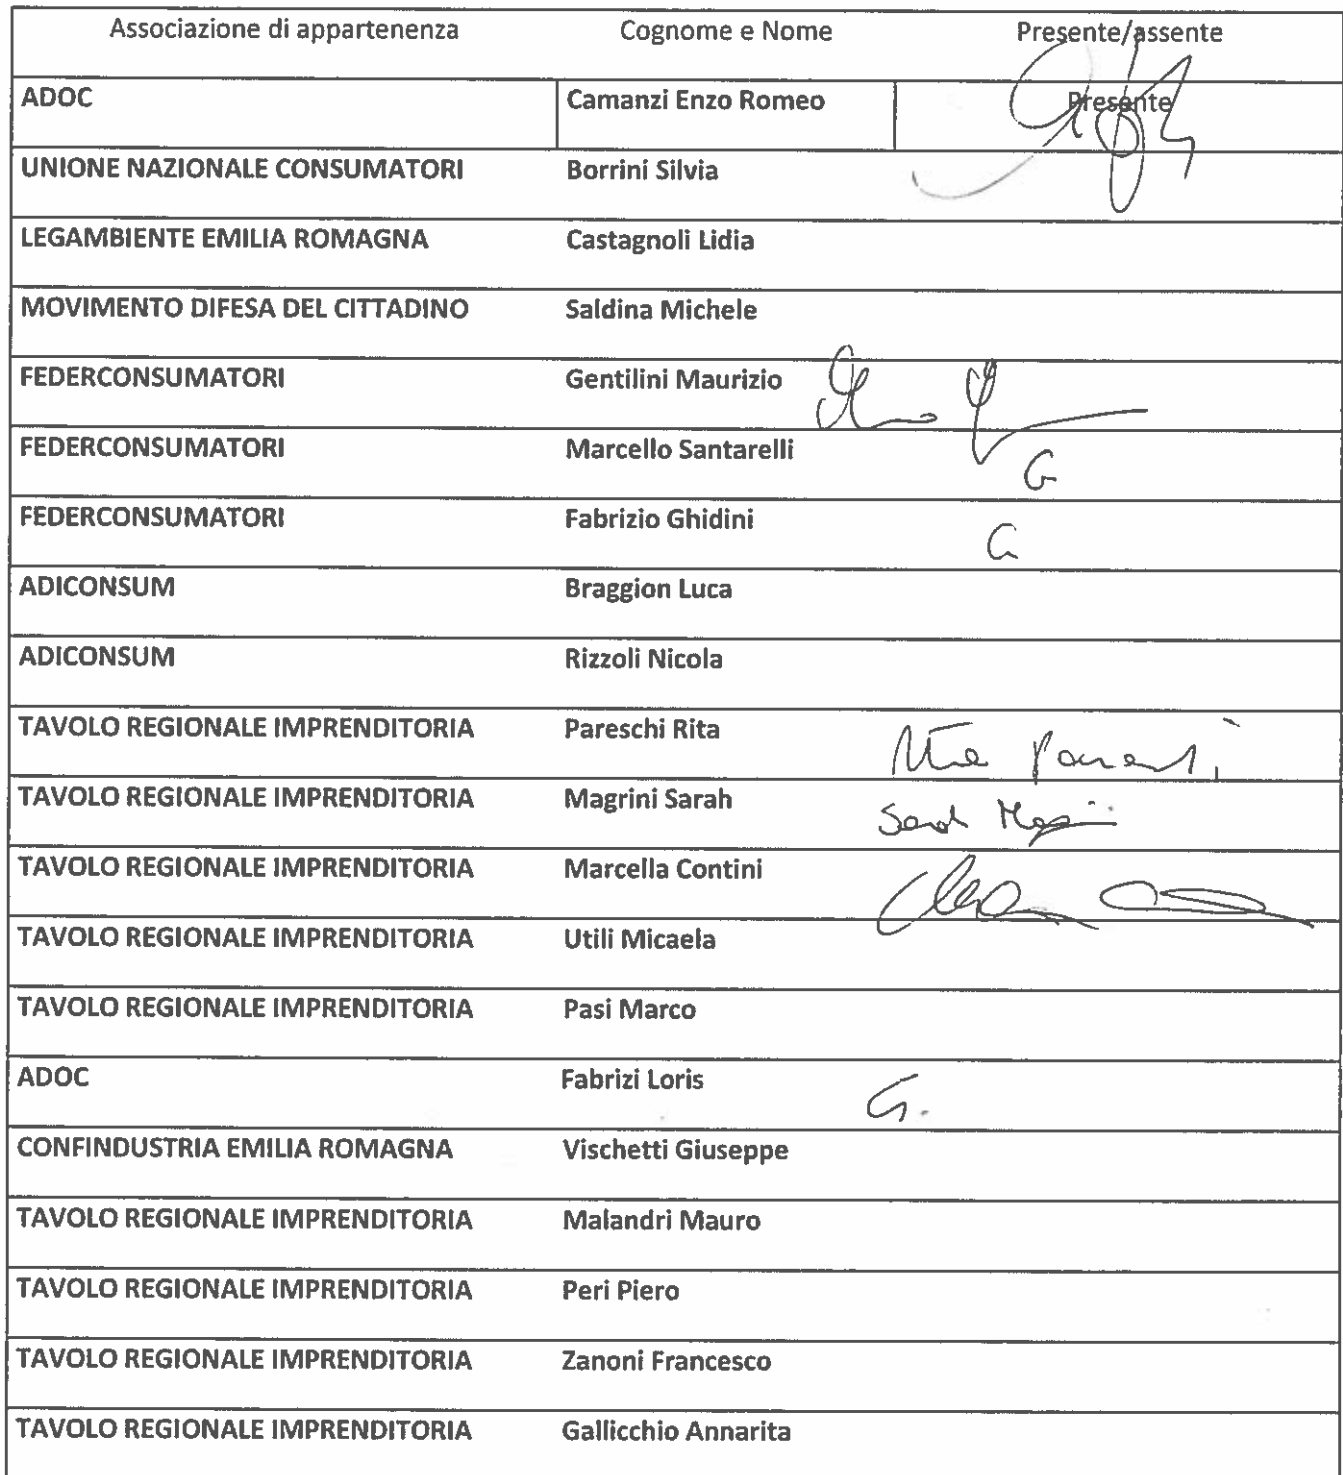 Associazione di appartenenza Cognome e Nome Presente/assente
ADOC Camanzi Enzo Romeo Presente
UNIONE NAZIONALE CONSUMATORI Borrini Silvia
LEGAMBIENTE EMILIA ROMAGNA Castagnoli Lidia
MOVIMENTO DIFESA DEL CITTADINO Saldina Michele
FEDERCONSUMATORI Gentilini Maurizio
FEDERCONSUMATORI Marcello Santarelli G
FEDERCONSUMATORI Fabrizio Ghidini G
ADICONSUM Braggion Luca
ADICONSUM Rizzoli Nicola
TAVOLO REGIONALE IMPRENDITORIA Pareschi Rita
TAVOLO REGIONALE IMPRENDITORIA Magrini Sarah
TAVOLO REGIONALE IMPRENDITORIA Marcella Contini
TAVOLO REGIONALE IMPRENDITORIA Utili Micaela
TAVOLO REGIONALE IMPRENDITORIA Pasi Marco
ADOC Fabrizi Loris G.
CONFINDUSTRIA EMILIA ROMAGNA Vischetti Giuseppe
TAVOLO REGIONALE IMPRENDITORIA Malandri Mauro
TAVOLO REGIONALE IMPRENDITORIA Peri Piero
TAVOLO REGIONALE IMPRENDITORIA Zanoni Francesco
TAVOLO REGIONALE IMPRENDITORIA Gallicchio Annarita